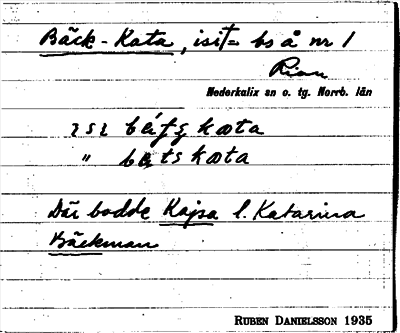 Bäck-Kata, isit= bs å nr 1
Rian
Nederkalix sn o. tg. Norrb. län
kata
" kata
Där bodde Kajsa l. Katarina
Bäckman
RUBEN DANIELSSON 1935